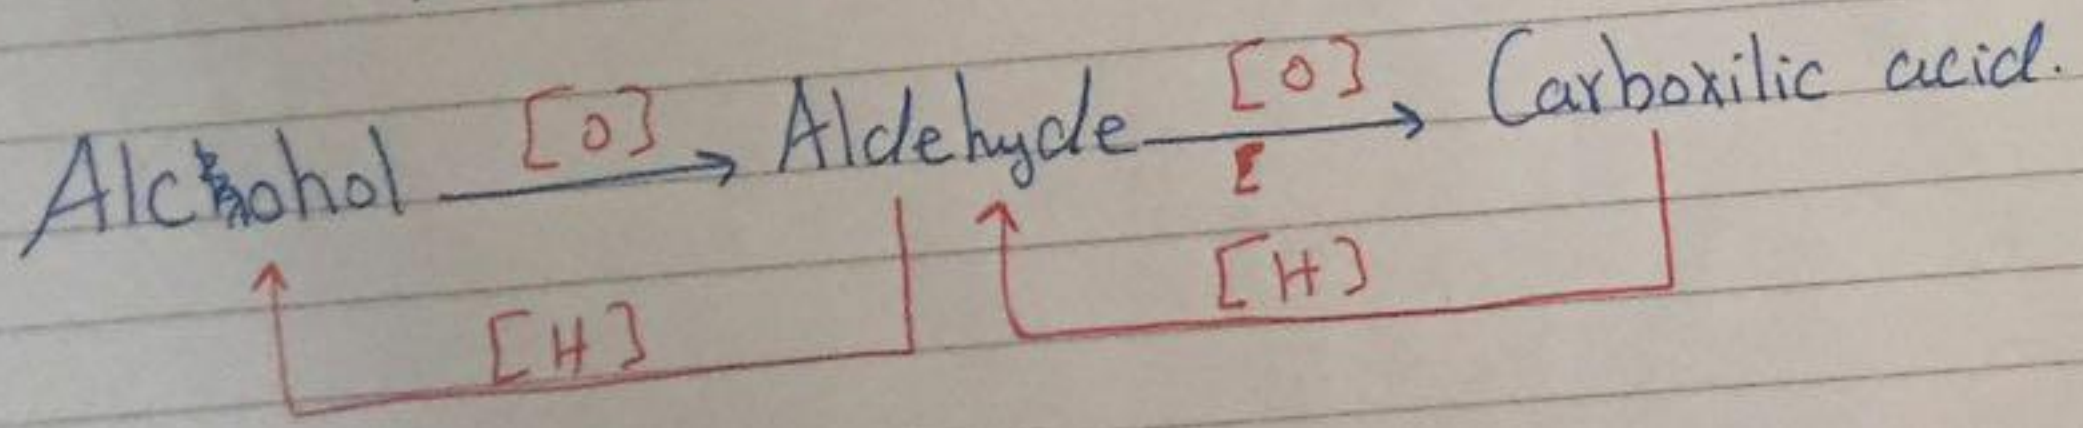 Alcohol [O] Aldehyde [O] Carboxilic acid.
[H] [H]